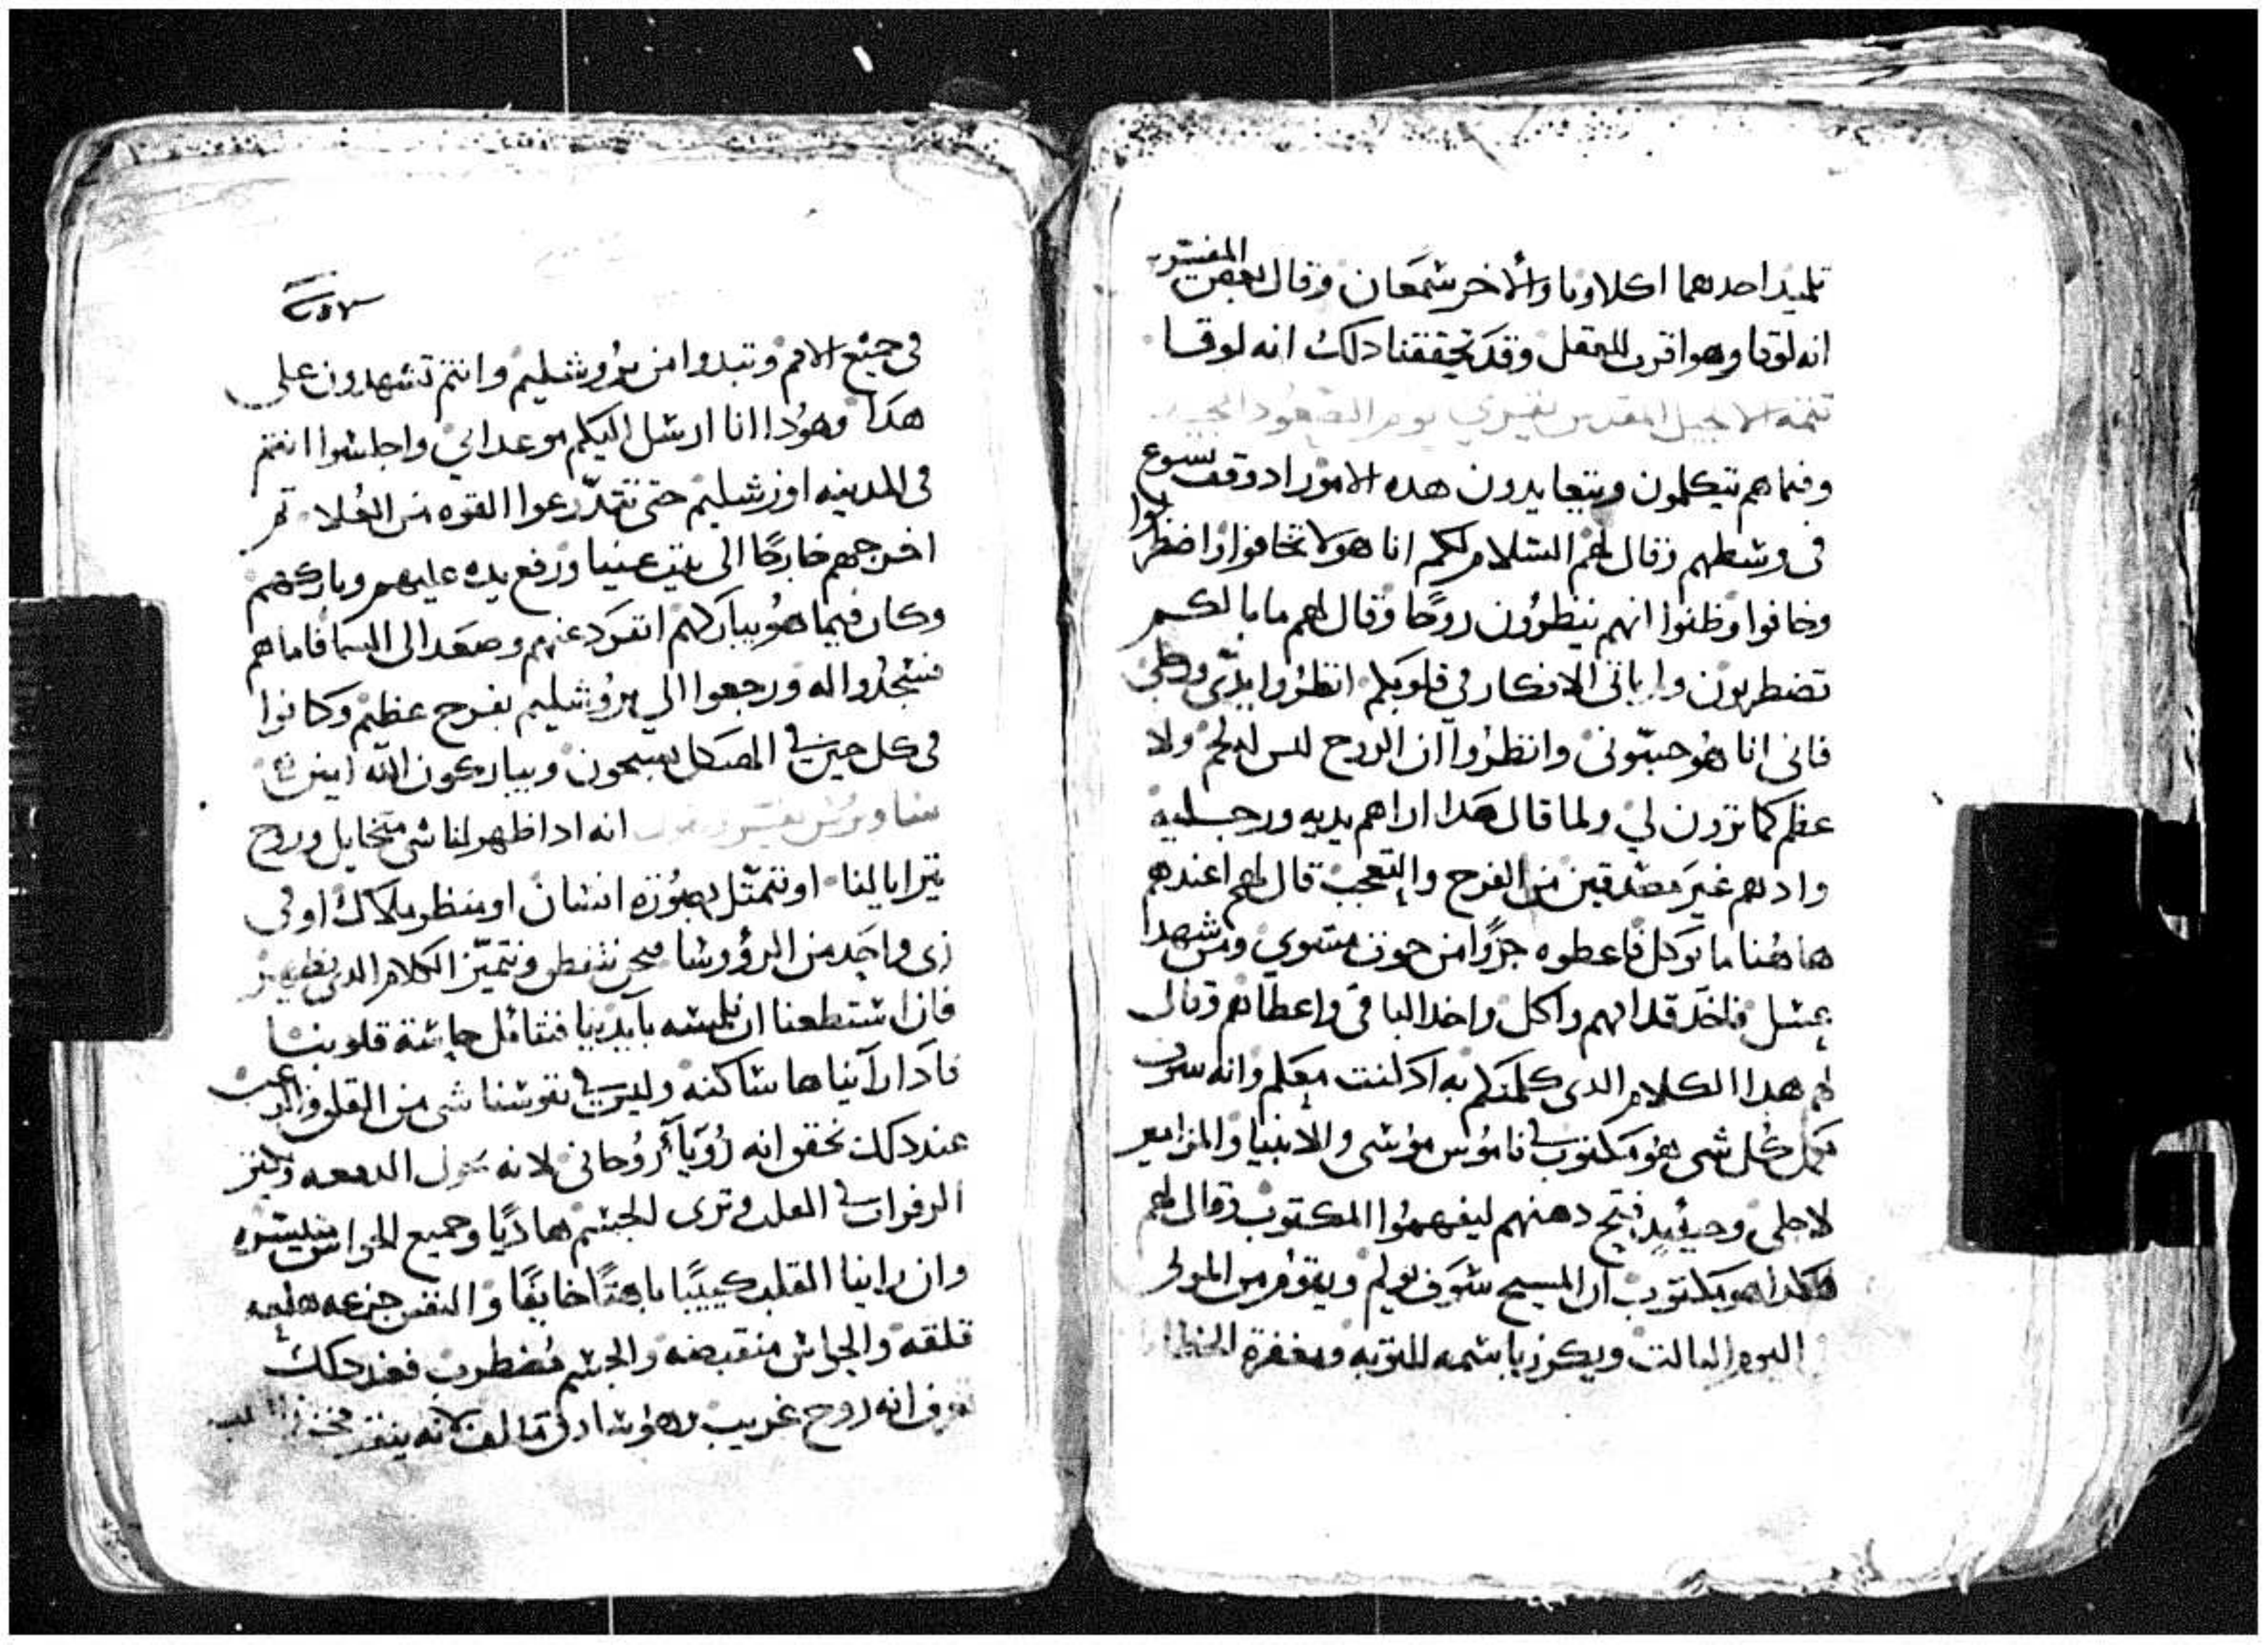 تلميد احدهما اكلاوبا والاخر شمعان وقال بعض المفسرين
انه لوقا وهو اقرب للعقل وقد تحققنا دلك انه لوقا
تتمه الانجيل المقدس تفسيري يوم الصعود المجيد
وفيما هم يتكلمون ويتعايدون هده الامور اد وقف يسوع
فى وسطهم وقال لهم السلام لكم انا هو لا تخافوا واضطربوا
وخافوا وظنوا انهم ينظرون روحًا وقال لهم ما بالكم
تضطربون وياتى الافكار فى قلوبكم انظروا يدى ورجلى
فانى انا هو حبسّونى وانظروا ان الروح ليس له لحم ولا
عظم كما ترون لي ولما قال هدا اراهم يديه ورجليه
واد هم غير مصدقين من الفرح والتعجب قال لهم اعندهم
هاهنا ما يوكل فاعطوه جزوًا من حوت مشوي ومن شهد
عسل فاخد قدامهم واكل واخد الباقى واعطاهم وقال
لهم هدا الكلام الدى كلمتكم به اد كنت معكم وانه سوف
يكمل كل شى هو مكتوب فى ناموس موسى والانبيا والمزامير
لاجلى وحينيدٍ فتح دهنهم ليفهموا المكتوب وقال لهم
هكدا هو مكتوب ان المسيح سوف يولم ويقوم من الموتى
اليوم التالت ويكرز باسمه للتوبه ومغفرة الخطايا
فى جميع الامم وتبدوا من يروشليم وانتم تشهدون على
هدا وهودا انا ارسل اليكم موعد ابى واجلسوا انتم
فى المدينه اورشليم حتى تتدّرعوا القوه من العُلا تم
اخرجهم خارجًا الى بيت عنيا ورفع يده عليهم وباركهم
وكان فيما هو يباركهم انفرد عنهم وصعد الى السما فاما هم
فسجدوا له ورجعوا الى يروشليم بفرح عظيم وكانوا
فى كل حين فى الهيكل يسبحون ويباركون الله امين
انه ادا ظهر لنا شى متخايل وروح
يترايا لنا او نتمثل بصورة انسان او بمنظر ملاك او فى
زى واحد من الرؤوسا فحن ننظر ونتميّز الكلام الدى يظهر
فان استطعنا ان نلمسه بايدينا فنتامل حاسّة قلوبنا
فادا رآيناها ساكنه وليس فى نفوسنا شى من القلق والرعب
عند دلك نحقق انه رُوَيآ رُوحانى لانه يحول الدمعه وتكتر
الزفرات فى القلب وترى الجسم هاديًا وجميع الحواس
وان راينا القلب كييبًا باهتًا خايفًا والنفس جزعه هلعه
قلقه والحواس منقبضه والجسم مضطرب فعند دلك
نعرف انه روح غريب وهو شادق تالف لانه ينفر